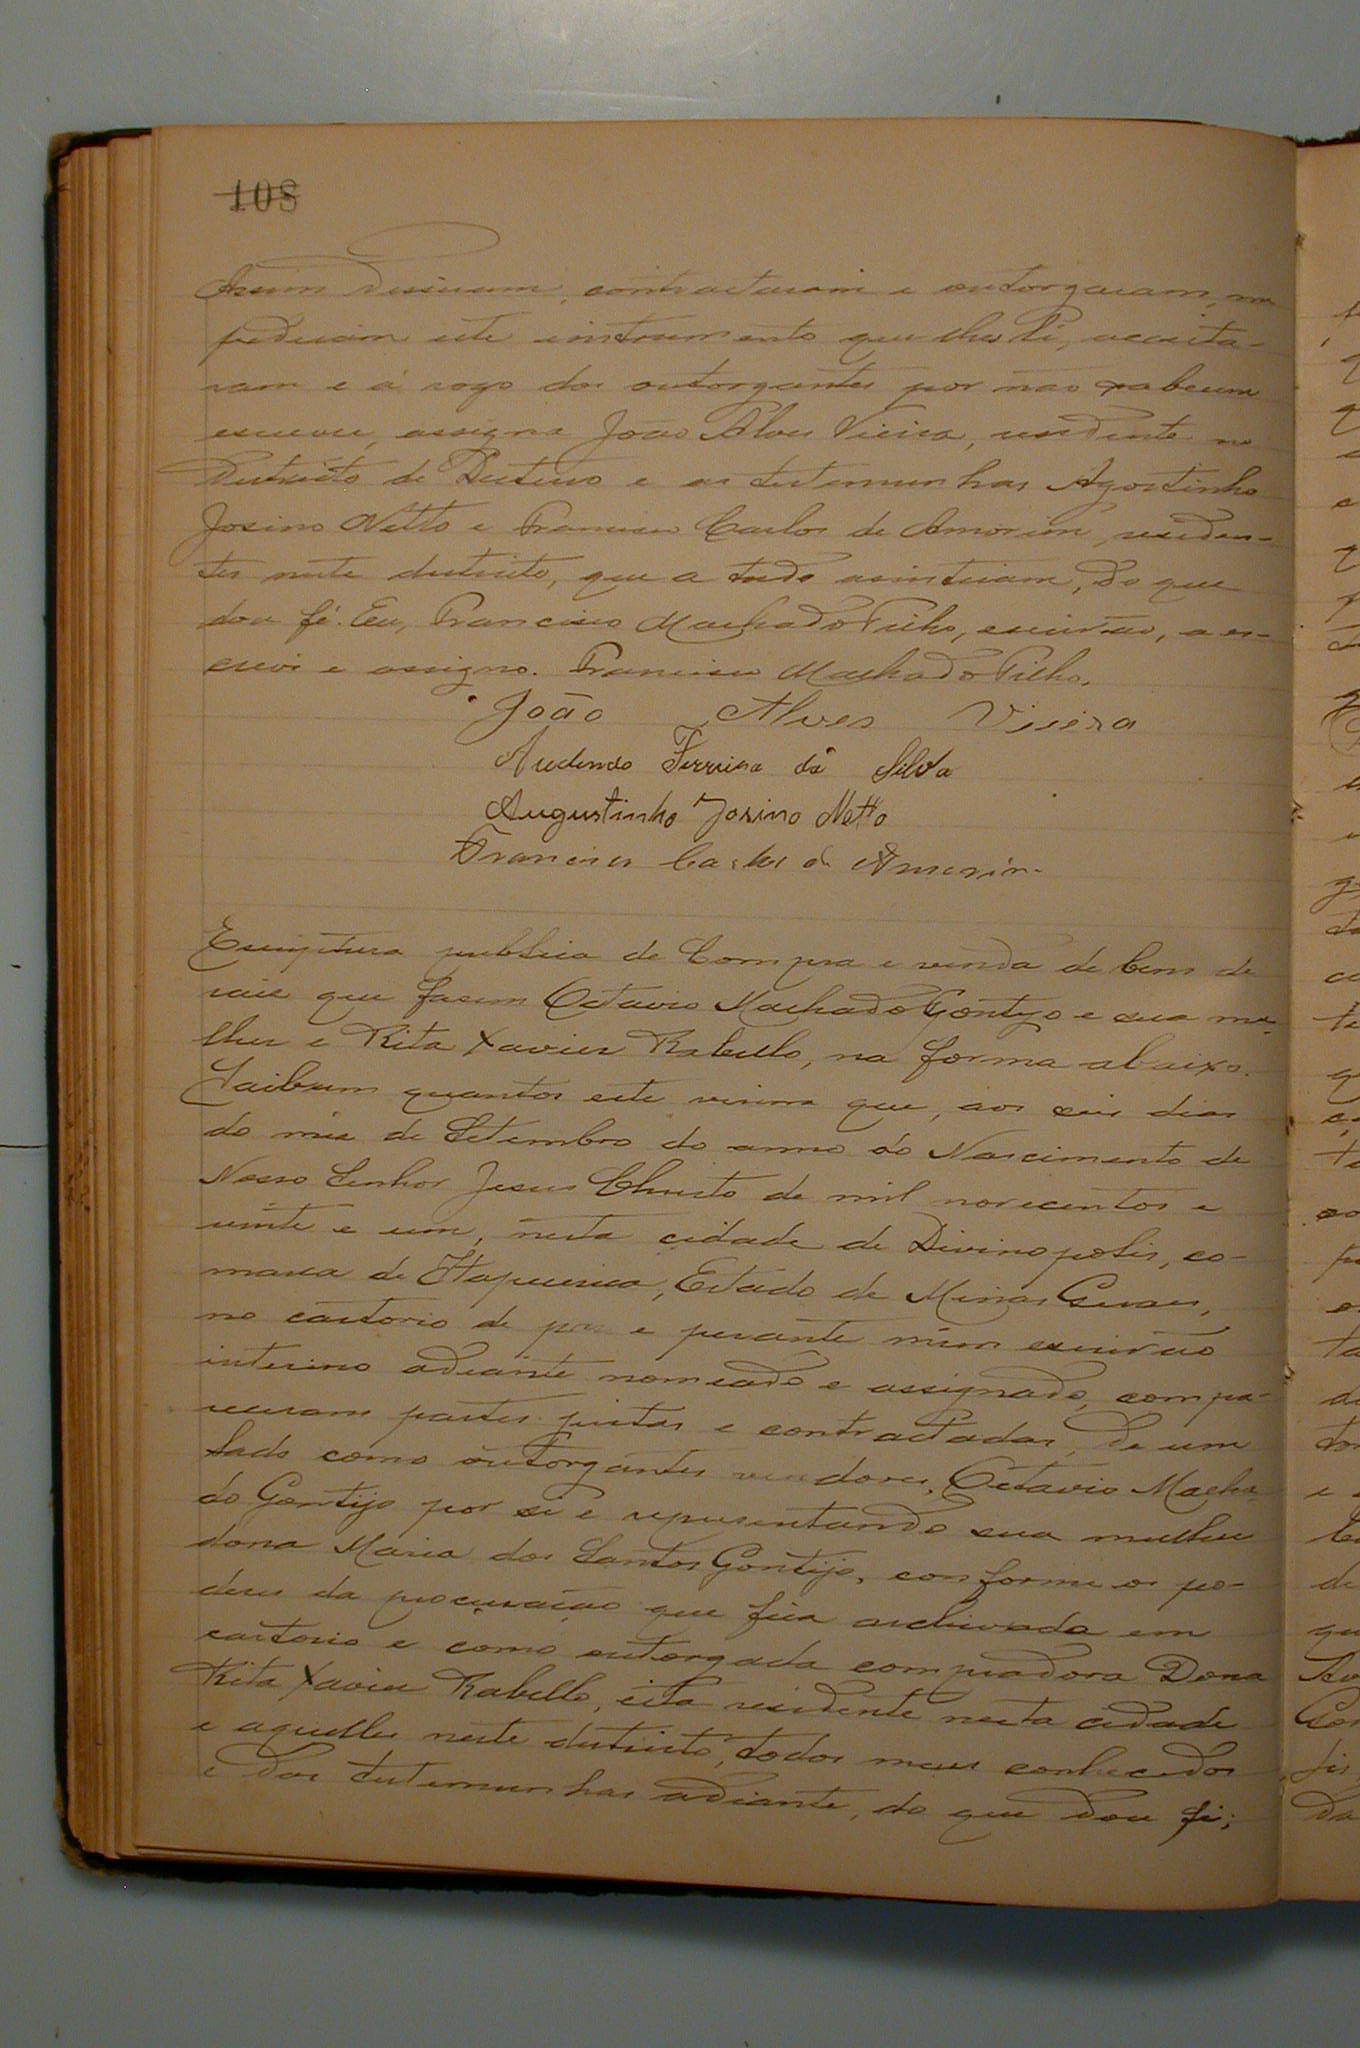 108
Assim disseram, contractaram e outorgaram, me
pediram este instrumento que lhes li, acceita-
ram e á rogo dos outorgantes por não saberem
escrever, assigna João Alves Vieira, residente no
Districto de Desterro e as testemunhas Agostinho
Josino Netto e Francisco Carlos de Amorim, residen-
tes neste districto, que a tudo assistiram, do que
dou fé. Eu, Francisco Machado Filho, escrivão, a es-
crevi e assigno. Francisco Machado Filho.
João Alves Vieira
Ferreira da Silva
Augustinho Josino Netto
Francisco Carlos de Amorim.
Escriptura publica de Compra e venda de bens de
raiz que fasem Octavio Machado Gontijo e sua mu-
lher e Rita Xavier Rabello, na forma abaixo.
Saibam quantos este virem que, aos seis dias
do mez de Setembro do anno do Nascimento de
Nosso Senhor Jesus Christo de mil novecentos e
vinte e um, nesta cidade de Divinopolis, co-
marca de Itapecerica, Estado de Minas Geraes,
no cartorio de paz e perante mim escrivão
interino adiante nomeado e assignado, compa-
receram partes justas e contractadas, de um
lado como outorgantes vendores, Octavio Macha-
do Gontijo por si e representando sua mulher
dona Maria dos Santos Gontijo, conforme os po-
deres da procuração que fica archivada em
cartorio e como outorgada compradora Dona
Rita Xavier Rabello, esta residente nesta cidade
e aquelles neste districto, todos meus conhecidos
e das testemunhas adiante, do que dou fé;